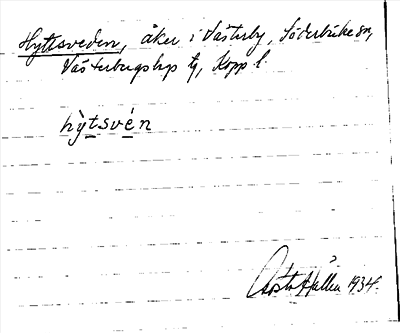 Hyttsveden, åker i Västerby, Söderbärke sn,
Västerbergslags tg, Kopp l.
hỳtsvén
1934.